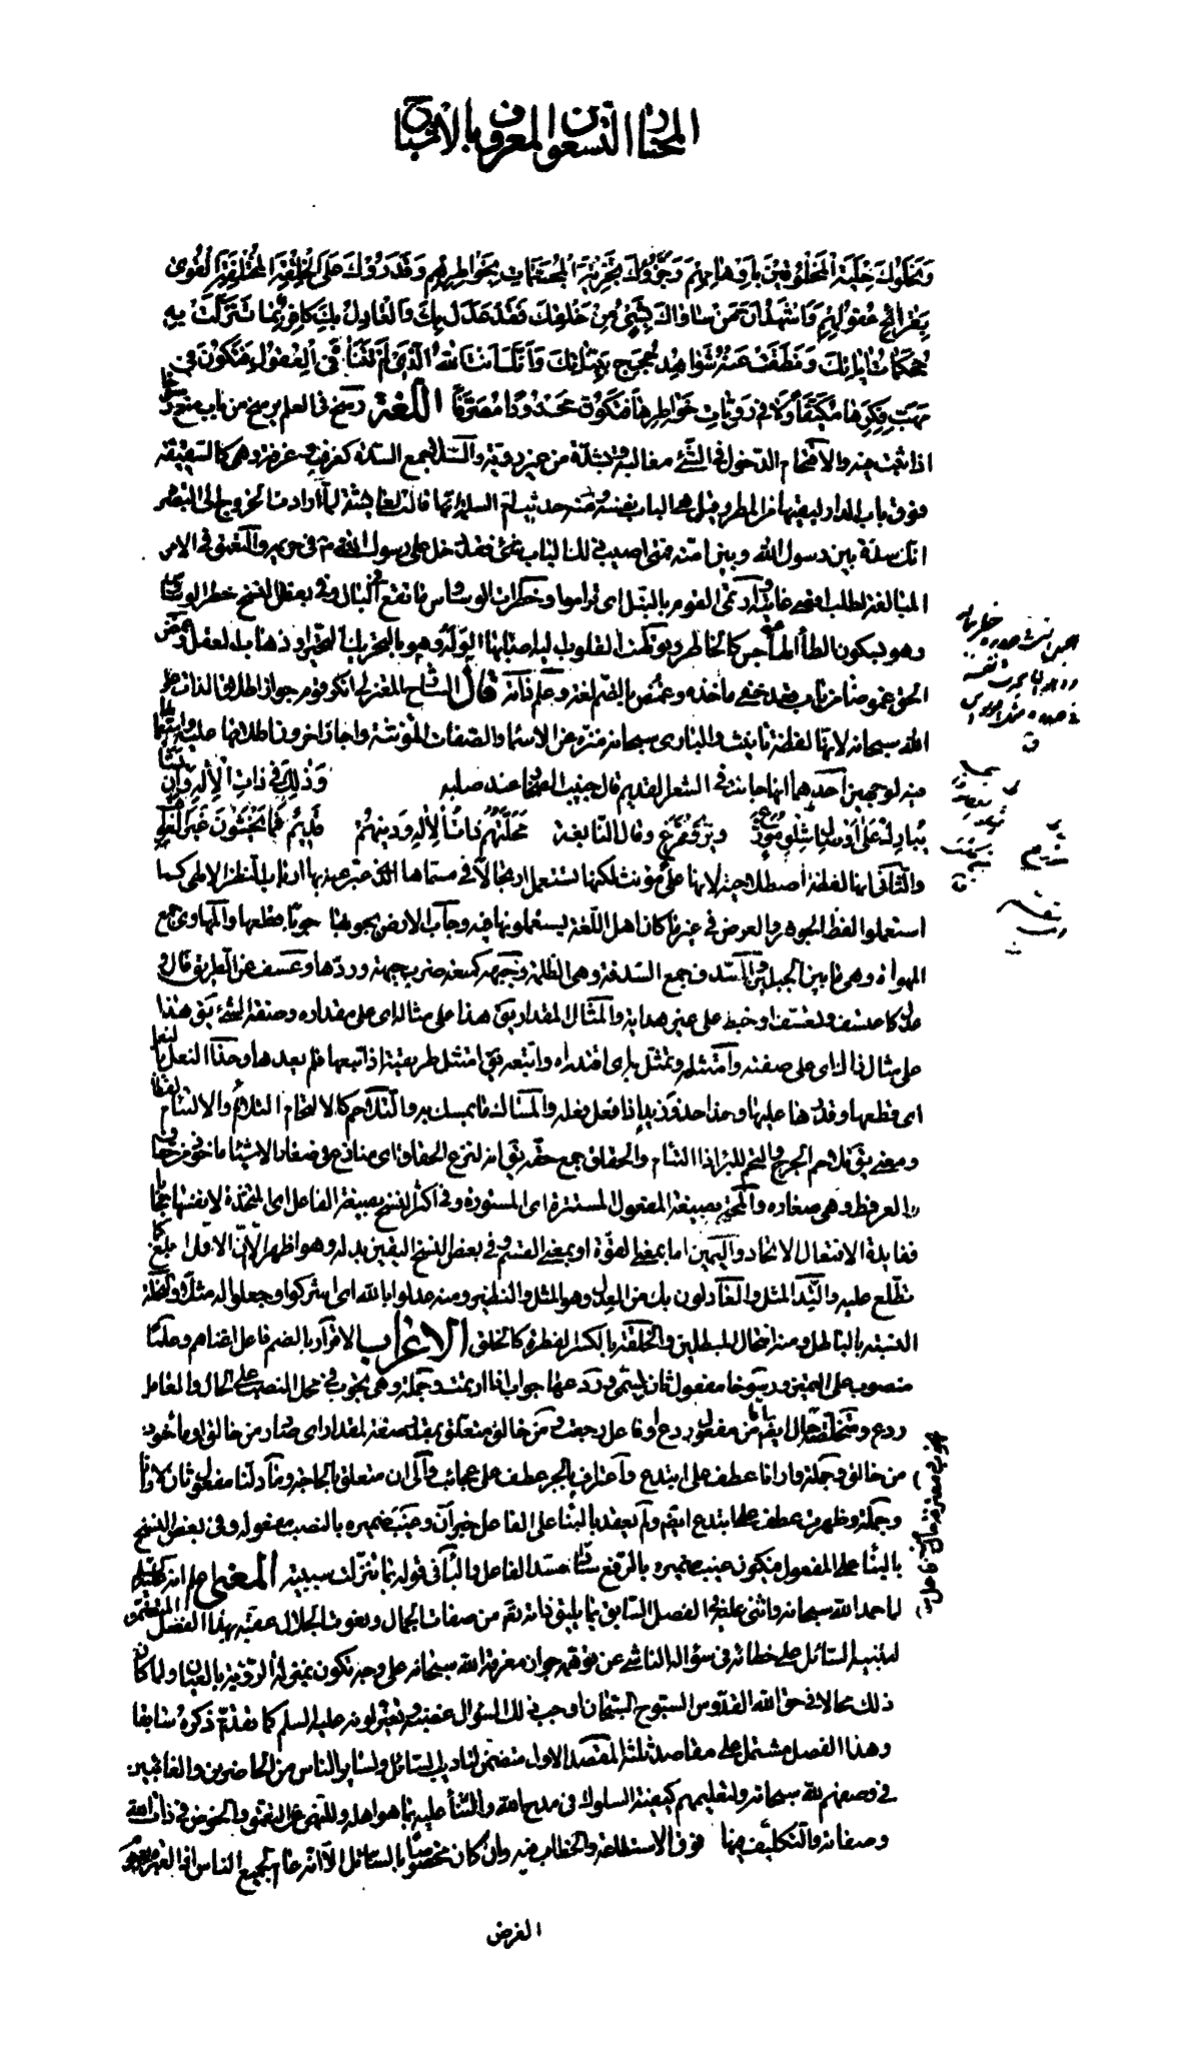 المختار التسعون المعروف بالأشباح
وَنَحَلُوكَ حِلْيَةَ الْمَخْلُوقينَ بِأَوْهامِهِمْ وَجَزَّؤُكَ تَجْزِيَةَ الْمُجَسَّماتِ بِخَواطِرِهِمْ وَقَدَّرُوكَ عَلَى الْخِلْقَةِ الْمُخْتَلِفَةِ الْقُوى
بِقَرائِحِ عُقُولِهِمْ وَأَشْهَدُ أَنَّ مَنْ ساواكَ بِشَيْءٍ مِنْ خَلْقِكَ فَقَدْ عَدَلَ بِكَ وَالْعادِلُ بِكَ كافِرٌ بِما تَنَزَّلَتْ بِهِ
مُحْكَماتُ آياتِكَ وَنَطَقَتْ عَنْهُ شَواهِدُ حُجَجِ بَيِّناتِكَ وَأَنَّكَ أَنْتَ اللهُ الَّذي لَمْ تَتَناهَ فِي الْعُقُولِ فَتَكُونَ في
مَهَبِّ فِكْرِها مُكَيَّفاً وَلا في رَوِيّاتِ خَواطِرِها فَتَكُونَ مَحْدُوداً مُصَرَّفاً اللغة رسخ في العلم يرسخ من باب منع رسوخا
اذا ثبت فيه والاقتحام الدخول في الشئ مغالبة وبشدة من غير روية والسدد جمع السدة كغرف وغرفة وهى كالسقيفة
فوق باب الدار ليقيها من المطر وقيل هى الباب نفسه ومنه حديث ام السلمة انها قالت لعايشة لما ارادت الخروج الى البصرة
انك سدة بين رسول الله وبين امته فمتى اصيب ذلك الباب بشئ فقد دخل على رسول الله في حريمه والتعمق في الامر
المبالغة لطلب اقصى غايته وارتمى القوم بالنبل اى تراموا وخطرات الوساوس ما تقع في البال وفي بعض النسخ خطر الوساوس
وهو بسكون الطاء الهاجس كالخاطر وتولهت القلوب اليه اصابها الوله وهو بالتحريك التحير او ذهاب العقل وغمض
الحق غموضا من باب قعد خفى مأخذه وغمض بالضم لغة وعلم ذاته قال الشارح المعتزلى انكر قوم جواز اطلاق الذات على
الله سبحانه لانها لفظة تأنيث والبارى سبحانه منزه عن الاسماء والصفات المؤنثة واجاز آخرون اطلاقها عليه واستعمالها
فيه لوجهين احدهما انها جاءت في الشعر القديم قال خبيب الصحابى عند صلبه وَذلِكَ في ذاتِ الْإِلهِ وَإِنْ يَشَأْ
يُبارِكْ عَلى أَوْصالِ شِلْوٍ مُوَزَّعٍ ويروى ممزع وقال النابغة مَحَلَّتُهُمْ ذاتُ الْإِلهِ وَدينُهُمْ قَديمٌ فَما يَخْشَوْنَ غَيْرَ الْعَواقِبِ
والثانى انها لفظة اصطلاحية لانها على مؤنث لكنها تستعمل ارتجالا في مسماها الذى عبر عنه بها ارباب النظر الالهى كما
استعملوا لفظ الجوهر والعرض في غير ما كان اهل اللغة يستعملونها فيه وجاب الارض يجوبها جوبا قطعها والمهاوى جمع
المهواة وهى ما بين الجبلين والسدف جمع السدفة وهى الظلمة وجبهه كمنعه ضرب جبهته وردها وعسف عن الطريق مال
عدل كاعتسف وتعسف او خبط على غير هداية والمثال المقدار يق هذا على مثاله اى على مقداره وصفة الشئ يق هذا
على مثال ذاك اى على صفته وامتثله وتمثل به اى اقتداه واتبعه يق امتثل طريقته اذا تبعها فلم يعدها وحذا النعل بالنعل
اى قطعها وقدرها عليها وحذا حذو زيد اذا فعل فعله والمساك ما يمسك به والتلاحم كالالتحام التلائم والالتيام لفظا
ومعنى يق تلاحم الجرح والتحم للبرء اذا التئام والحقاق جمع حقة
بالعرفط وهى صغاره والمحتجبة بصيغة المفعول المستترة اى المستورة وفي اكثر النسخ بصيغة الفاعل اى المتخذة لانفسها حجابا
ففايدة الافتعال الاتخاذ واليمين اما بمعنى القوة او بمعنى القسم وفي بعض النسخ اليقين بدله وهو اظهر الا ان الاول ابلغ
تطلع عليه والند المثل والعادلون بك من العدل وهو المثل والنظير ومنه عدلوا بالله اى اشركوا وجعلوا له مثلا والنحلة
النسبة بالباطل ومنه انتحال المبطلين والخلقة بالكسر الفطرة كالخلق الاعراب الاقرار بالضم فاعل اغناهم وعلما
منصوب على التميز ورسوخا مفعول ثان لسمى وردعها جواب اذا ارتمت وجملة وهى تجوب في محل النصب على الحال والعامل
ردع ومتخلصة حال ايضا من مفعول ردع او فاعل رجعت ومن خالق متعلق بمقدر صفة لمقدار اى صادر من خالق او مأخوذ
من خالق وجملة وارانا عطف على ابتدع واعتراف بالجر عطف على عجائب والى ان متعلق بالحاجة وما دلنا مفعول ثان لارانا
وجملة وظهرت عطف على ابتدع ايضا ولم يعقد بالبناء على الفاعل خبر ان وغيب ضميره بالنصب مفعوله وفي بعض النسخ
بالبناء على المفعول فيكون غيب ضميره بالرفع سادا مسد الفاعل والباء في قوله بما تنزلت سببية المعنى اعلم انه
لما حمد الله سبحانه واثنى عليه في الفصل السابق بما يليق ذاته تعالى من صفات الجمال ونعوت الجلال عقبه بهذا الفصل المتضمن
لتنبيه السائل على خطائه في سؤاله الناشئ عن توهمه جواز معرفة الله سبحانه على وجه تكون بمنزلة الرؤية بالعيان ولما كان
ذلك محالا في حق الله القدوس السبوح السبحان اوجب ذلك السؤال غضبه وتغير لونه عليه السلم كما تقدم ذكره سابقا
وهذا الفصل مشتمل على مقاصد ثلثة المقصد الاول متضمن لتاديب السائل ولساير الناس من الحاضرين والغائبين
في وصفهم لله سبحانه ولتعليمهم كيفية السلوك في مدح الله والثناء عليه بما هو اهله وللنهى عن التعمق والخوض في ذات الله
وصفاته والتكليف فيها فوق الاستطاعة والخطاب فيه وان كان مخصوصا بالسائل الا انه عام لجميع الناس
الغرض